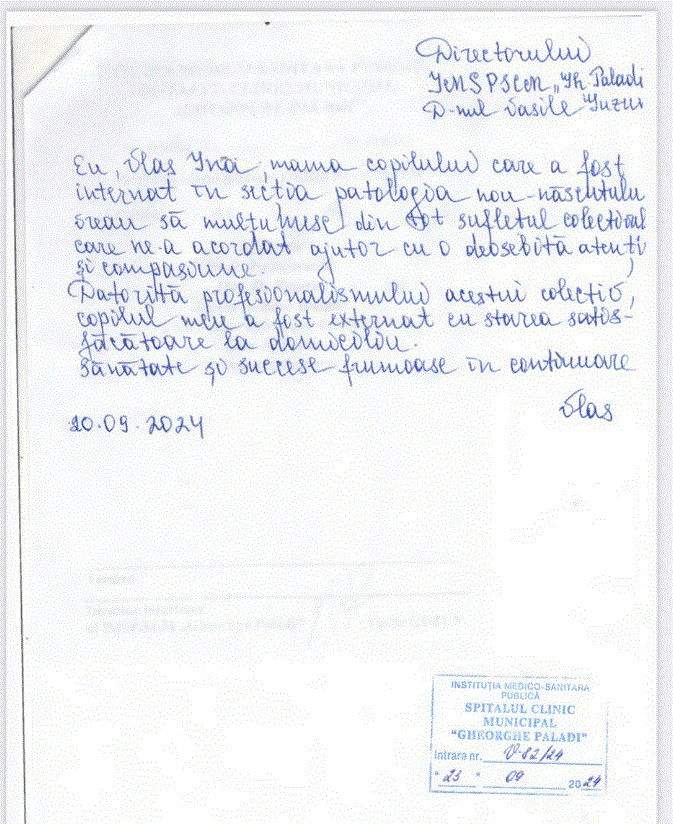 Directorului
IMSP SCM „Gh. Paladi
D-nul Vasile Guzun
Eu, Vlas Ina, mama copilului care a fost
internat în sectia patologia nou-născutulu
vreau să mulțumesc din tot sufletul colectivul
care ne-a acordat ajutor cu o deosebită atenți
și compasiune.
Datorittă profesionalismului acestui colectiv,
copilul meu a fost externat cu starea satis-
făcătoare la domiciliu.
Sănătate și succese frumoase în continuare
Vlas
20.09.2024
INSTITUȚIA MEDICO-SANITARA
PUBLICĂ
SPITALUL CLINIC
MUNICIPAL
"GHEORGHE PALADI"
Intrare nr. V-82/24
"23" 09 2024